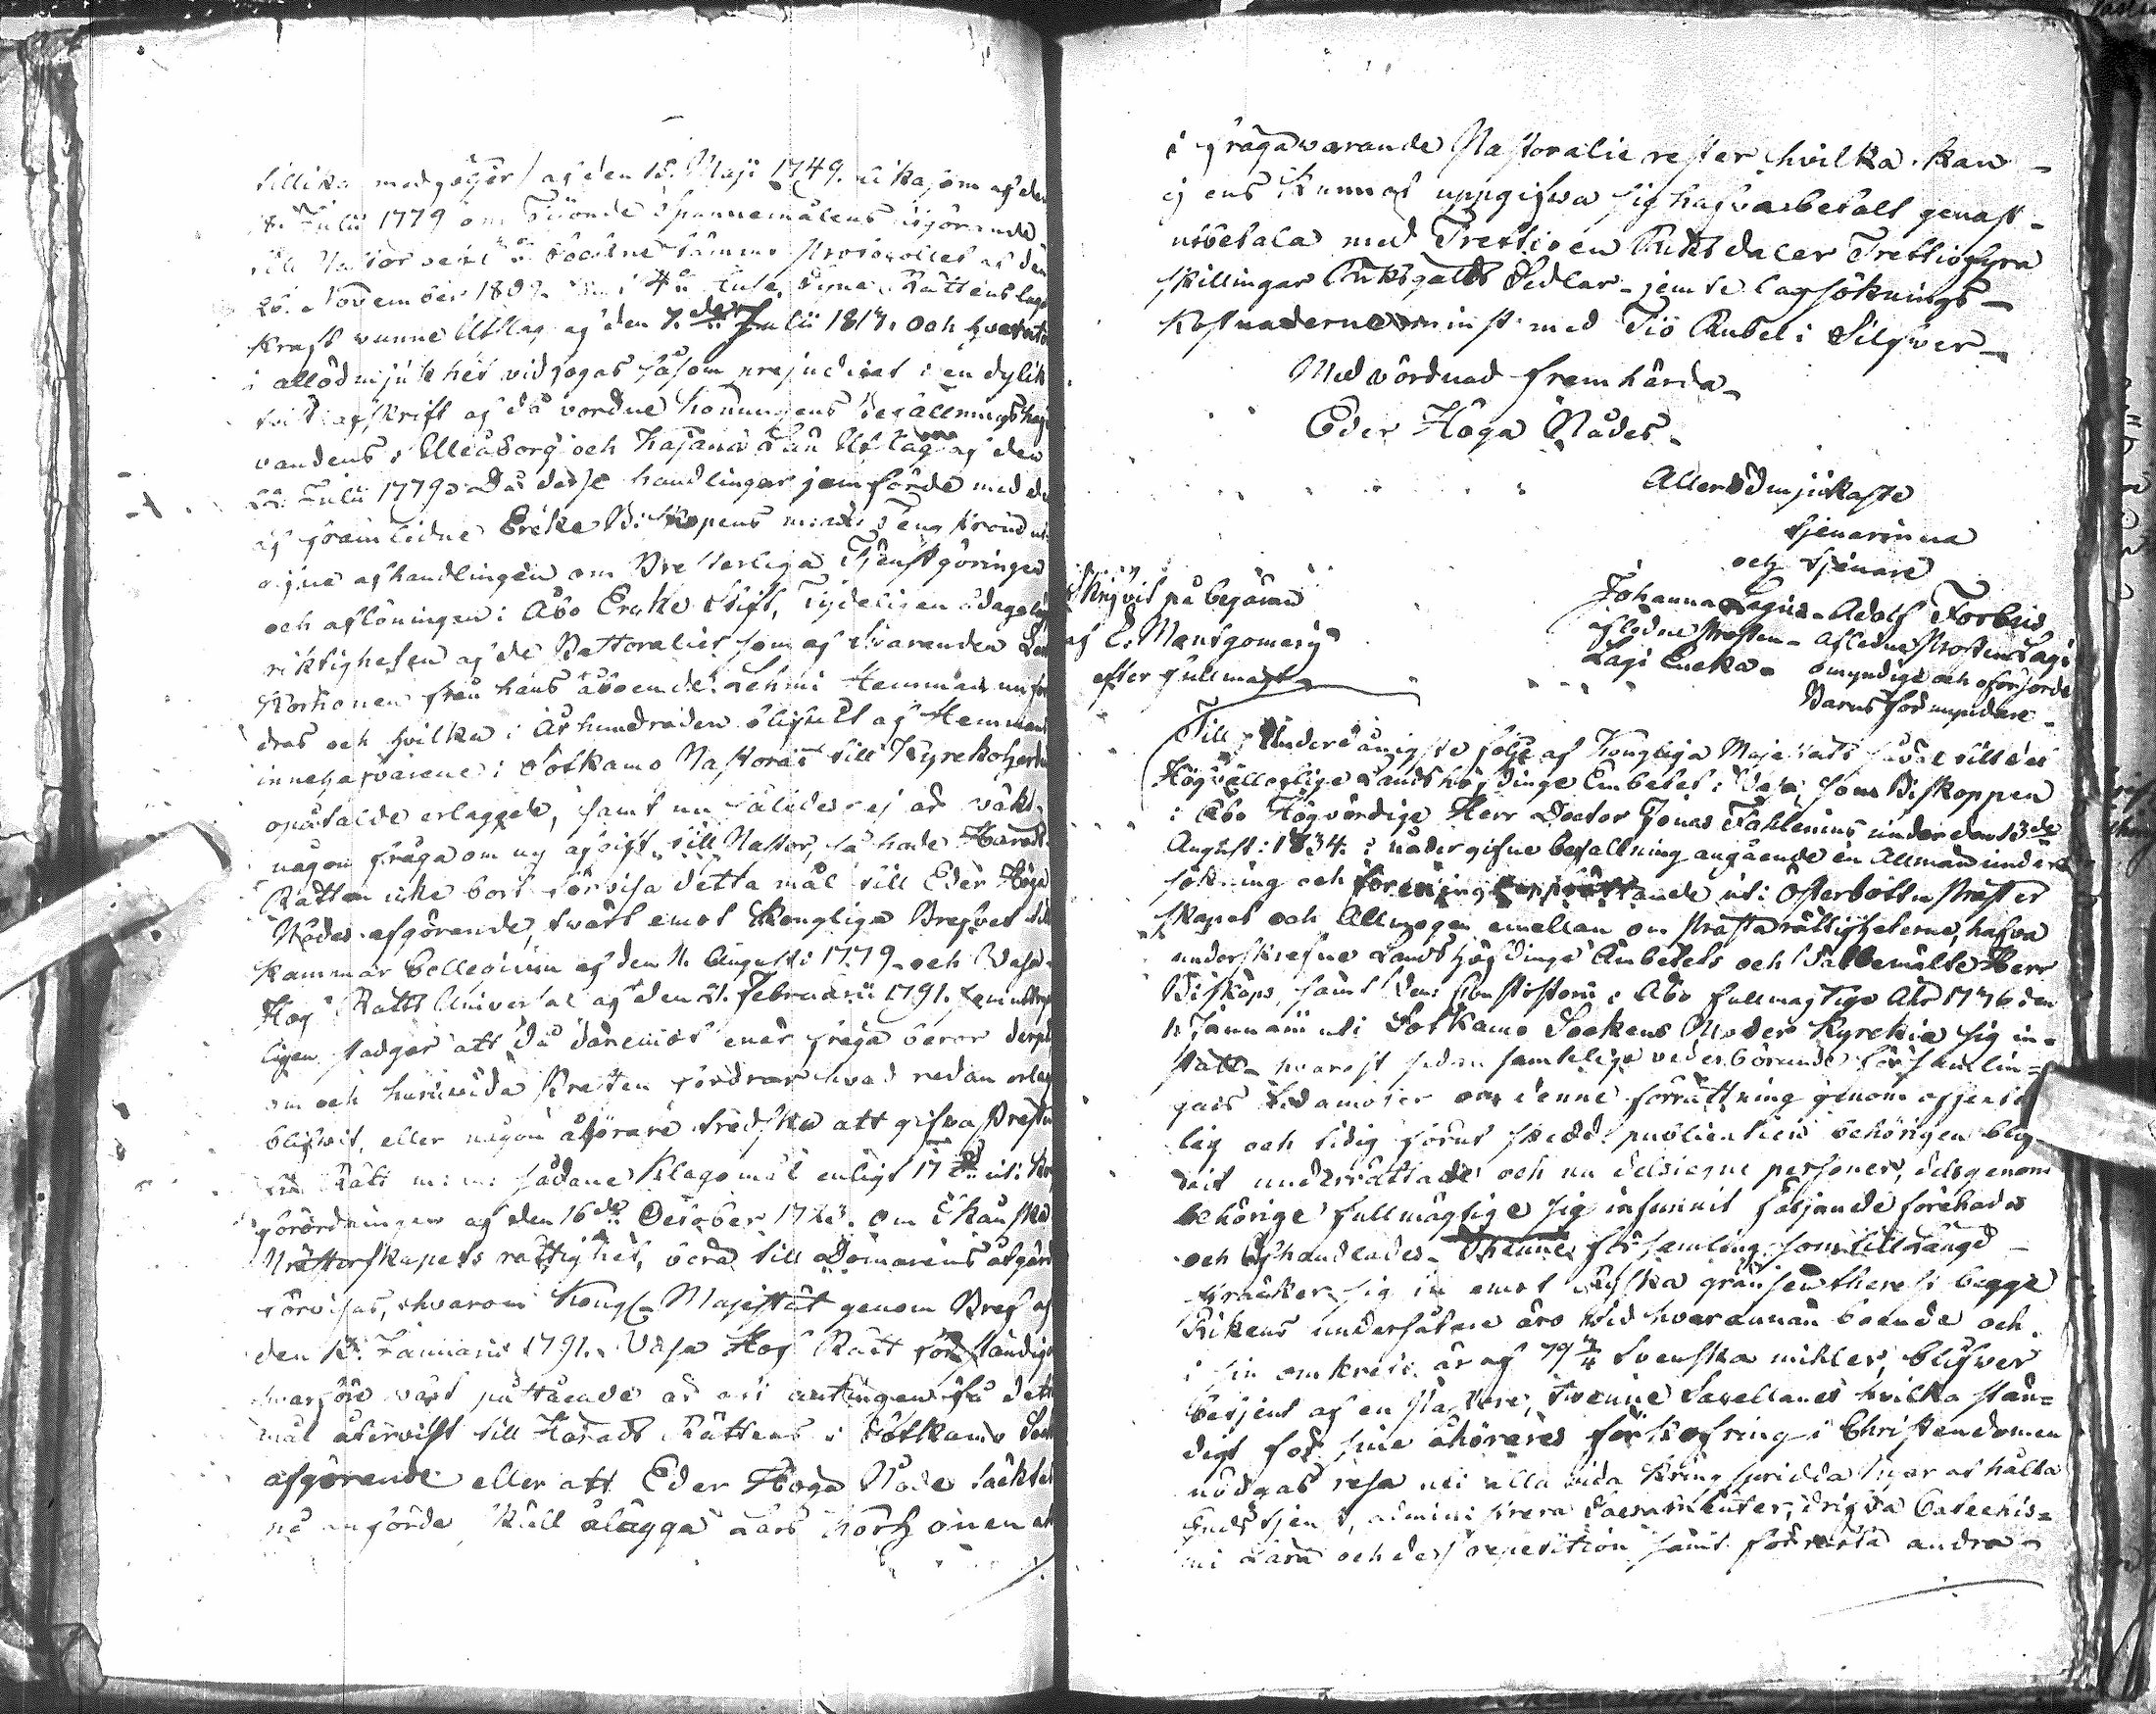 tillika medgifer / af den 15. Maji 1749. lika som af den
8. Julii 1779 om Tiionde Spannemålens utgörande
till Pastor vid Sockne Stämmo Protocollet af den
26. November 1809.
Kraft vunne Utslag af den 7.de Julii 1817. och hvarutom
i allödmjukhet vidfogas såsom prejudicat i en dylik
tvist afskrift af då vordne Konungens Befallningshaf
vandens i Uleåborg och Kajana Län Utslag af den
22. Julii 1779. Då desse handlingar jemförde med de
af framlidne Erke Biskopens
afhandlingen om Presterliga Tjenstgöringen
och aflöningen i Åbo Erke Stift, Tydeligen ådagalägg
riktigheten af de Pastoralier som af Svaranden Lars
Korhonen från hans åboende Lehmi Hemman
dras och hvilka i Århundraden blifvit af Hemmans
innehafvarene i Sotkamo Pastorat till Kyrkoherden
oåtalde erlaggde, samt nu således ej är väkt
någon fråga om ny afgift till Pastor, så hade Härads
Rätten icke bort förvisa detta mål till Eder Höga
Nådes afgörande, tvärt emot Kongliga Brefvet till
Kammar Collegium af den 11. Augusti 1779 och Vasa
Hof Rätts Universal af den 21. Februarii 1791.
ligen stadgar att då däremot enär fråga äror
om och huruvida Presten fordrar hvad redan erlagt
blifvit, eller någon åhörare tredska att gifva Presten
sin Rätt m: m: sådane Klagomål enligt 17 §. uti
förordningen af den 16de October 1723. om Österbottniska
Prästerskapets rättighet, böra till Domarens åtgärd
förvisas, hvarom Kongl Majestät genom Bref af
den 13. Januarii 1791. Vasa Hof Rätt förständigat
hvarföre vårt påstående är att antingen få detta
mål återvist till Härads Rättens i Sotkamo Sockn
afgörande eller att Eder Höga Nåde täcktes
på anförde skäll ålägga Lars Korhonen att
i frågavarande Pastoralie rester hvilka han
ej ens kunnat uppgifwa sig hafva betalt genast
utbetala med Trettioen Riksdaler Trettiofyra
skillingar Riksgälds Sedlar jemte lagsöknings
kostnaderne minst med Tio Rubel i Silfwer
Med vördnad framhärda
Eder Höga Nådes
Allerödmjukaste
tjenarinna
och tjenare
Johanna Lagus Adolf Forbus
aflidne Prosten aflidne Prosten Lagi
Lagi Encka omyndige och oförsörde
Barns förmyndare
Skrifvit på begäran
af C. Montgomery
efter fullmagt
Till Underdånigste följe af Kongliga Majestäts såväl till det
Högvällofliga Landshöfdinge Embetet i Vasa, som Biskoppen
i Åbo Högvördige Herr Doctor Jonas Fahlenius under den 13de
August: 1734. i nåder gifne befallning angående en Allmän under
sökning och förening inrättande uti Österbottn Präster
skapet och Allmogen emellan om Prästa rättigheterne, hafva
underskrefne Landshöfdinge Ambetets och Välbemälte Herr
Biskops samt dess Consistorii i Åbo fullmägtige År 1736 den
11 Januarii uti Sotkamo Sockens Moder Kyrckia sig in-
ställt hvarest sedan samtelige vederbörande församlin-
gars Ledamöter om denne förrättning genom offent
lig och tidig förut skedd publication behörigen blif
vit underrättade och nu dels i egne personer, dels genom
behörige fullmägtige sig infunnit följande förehades
och afhandlades. Thenne församling som till längd
sträcker sig in emot Ryska gränsen therest begge
Rikens undersåtare äro vid hvarannan boende och
i sin omkrets är af 79 3/4 Svenska mihler, blifver
betjent af en Pastore, twenne Capellaner hvilka stän-
digt för sine åhörares förkofring i Christendomen
nödgas resa uti alla vida kring spridda byar at hålla
Gudstjenst, administrera Sacramenter, drifva Catechis-
mi Lära och dess repetition samt förrätta andra